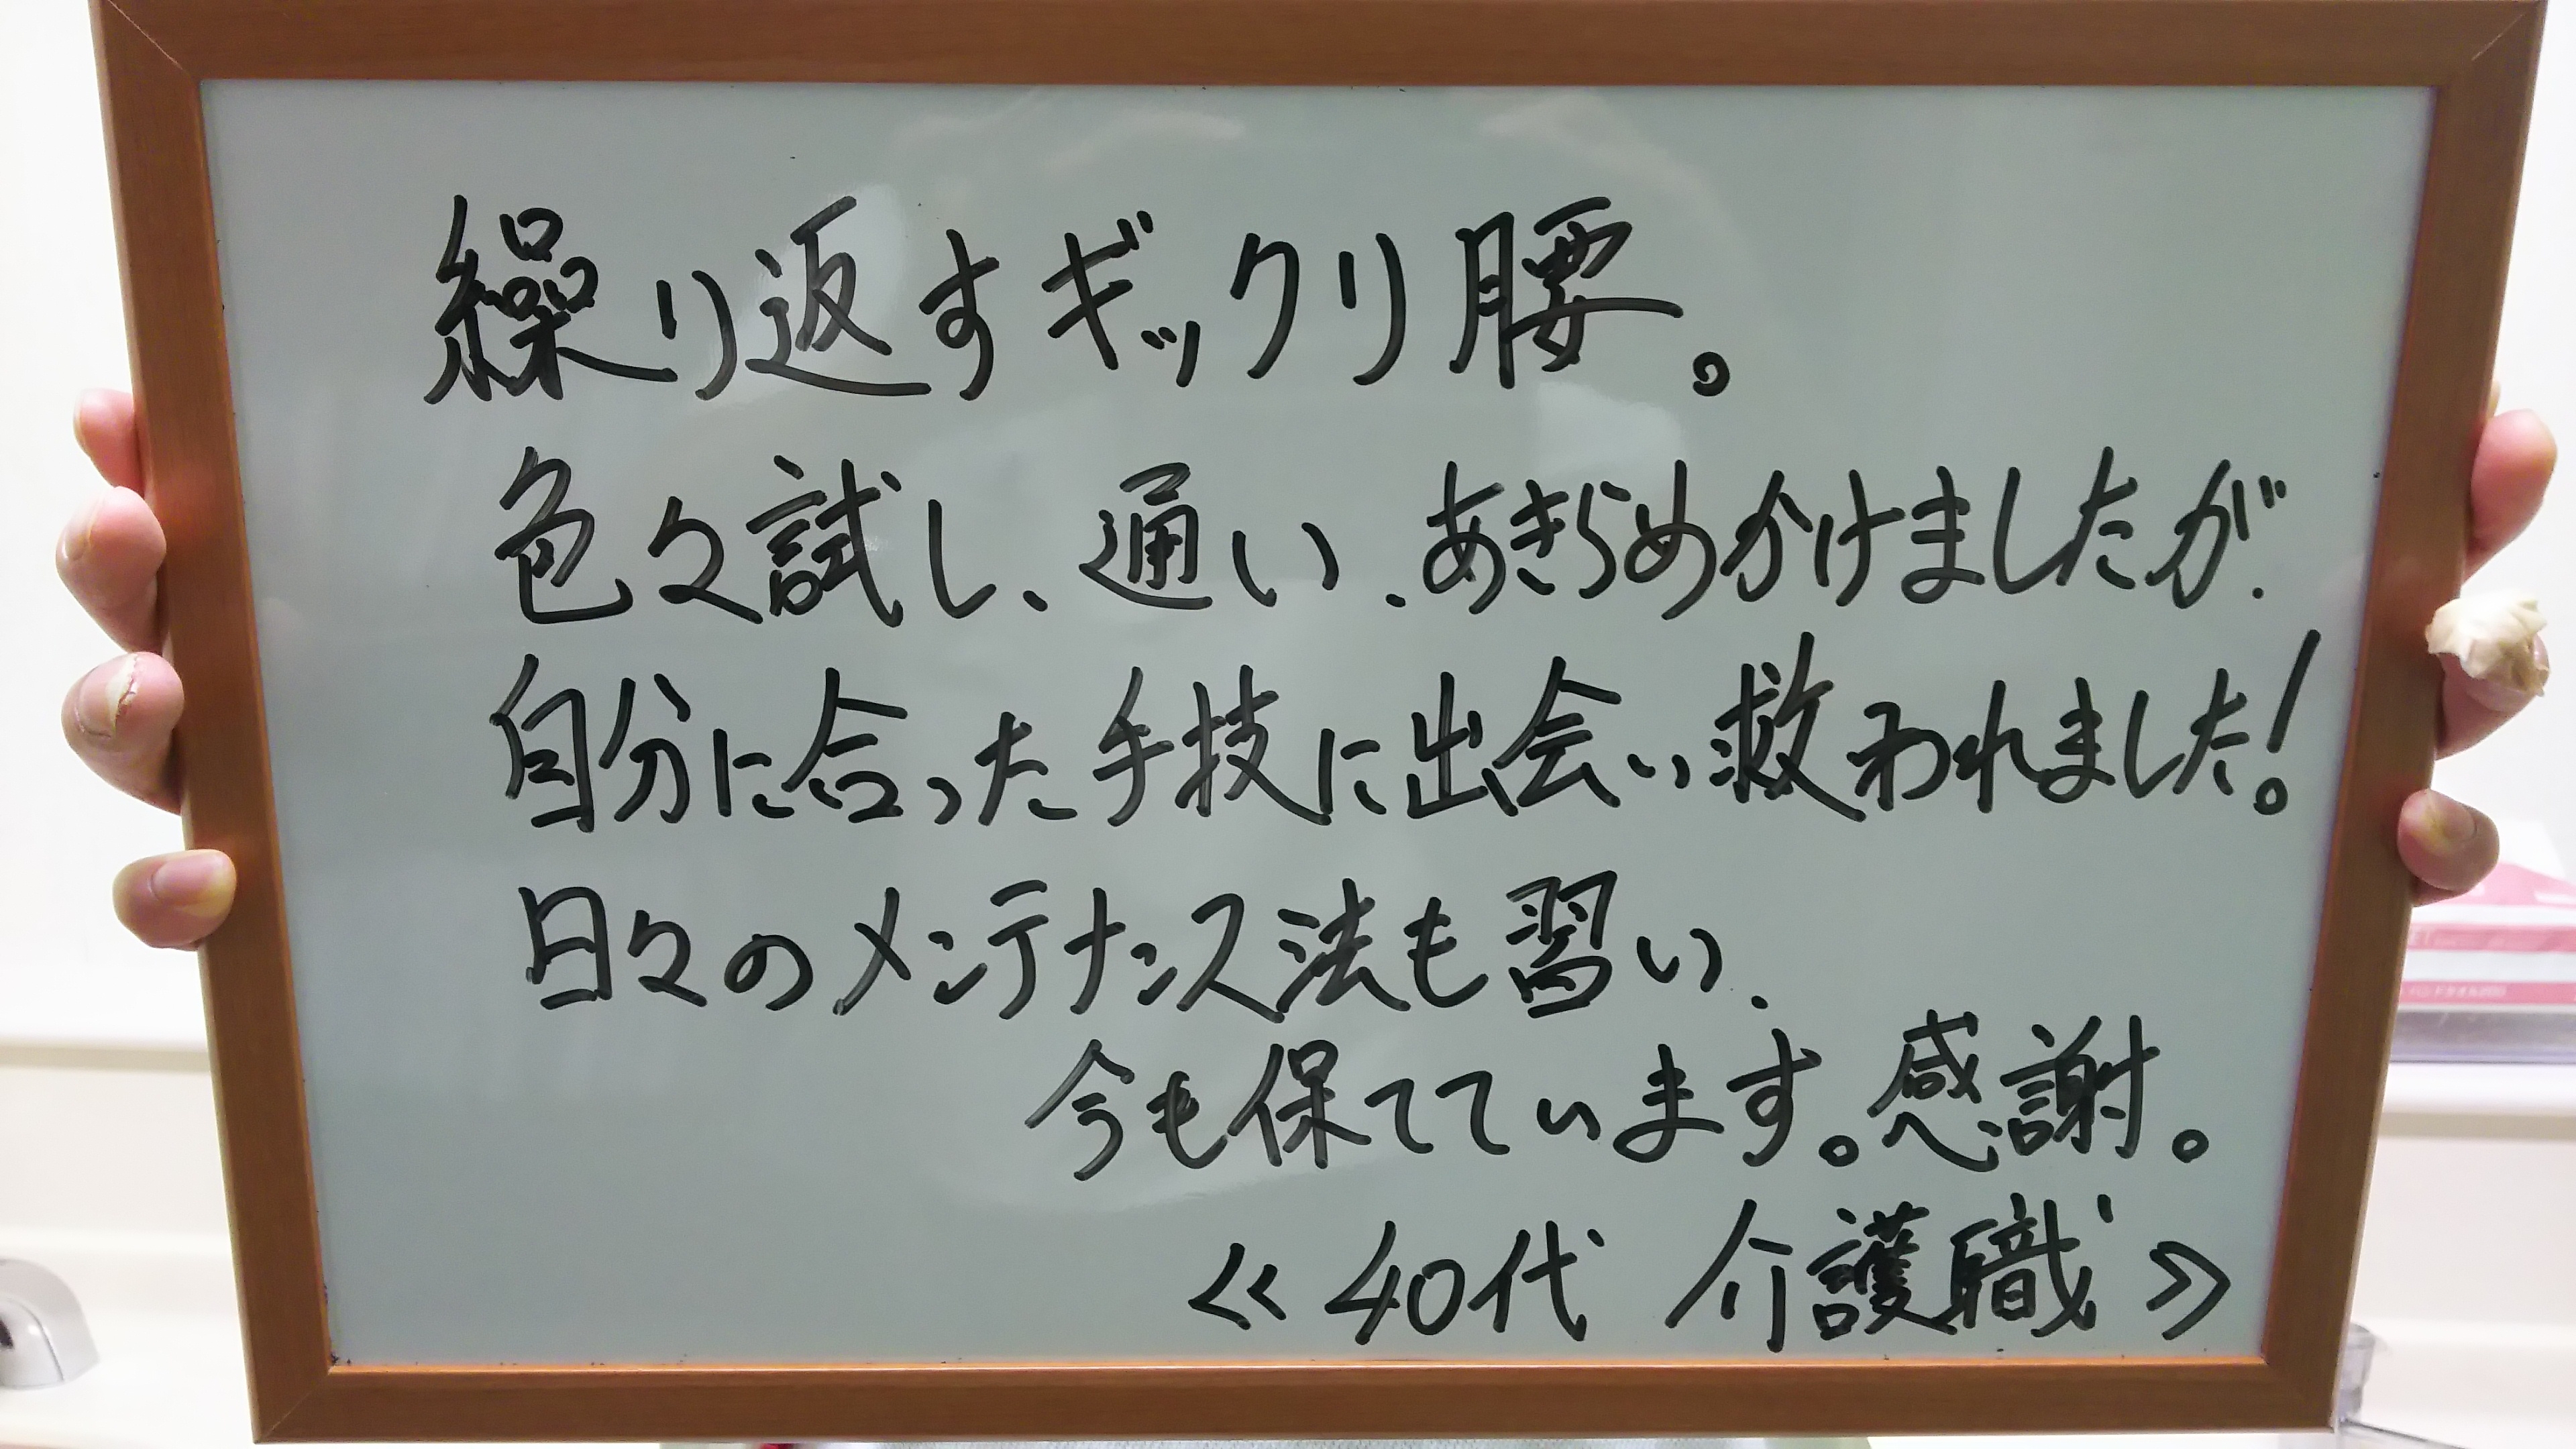 繰り返すギックリ腰。
色々試し、通い、あきらめかけましたが、
自分に合った手技に出会い救われました!
日々のメンテナンス法も習い、
今も保てています。感謝。
≪40代 介護職≫